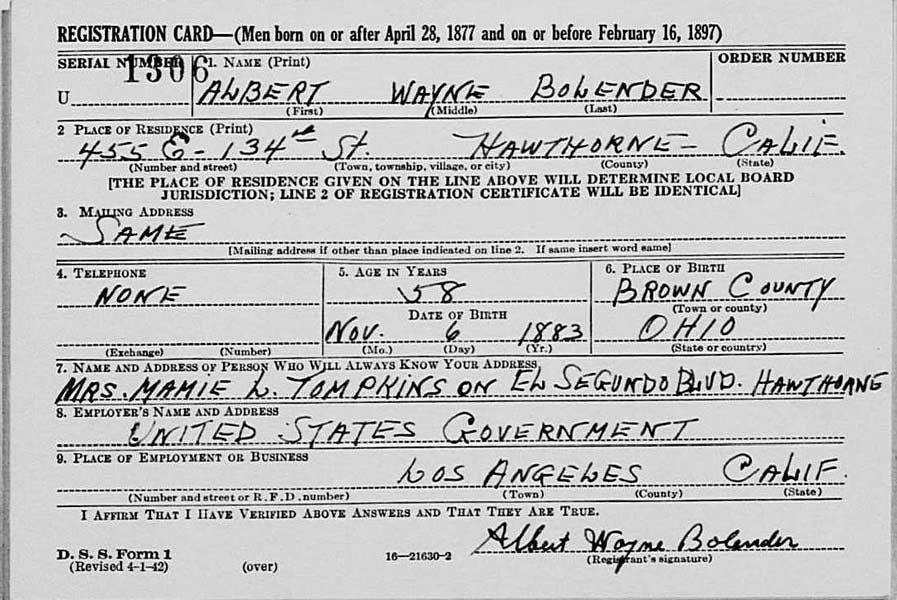 REGISTRATION CARD—(Men born on or after April 28, 1877 and on or before February 16, 1897)
SERIAL NUMBER 1306 1. NAME (Print) ORDER NUMBER
U ALBERT WAYNE BOLENDER
(First) (Middle) (Last)
2 PLACE OF RESIDENCE (Print)
455 E - 134th St. HAWTHORNE - CALIF.
(Number and street) (Town, township, village, or city) (County) (State)
[THE PLACE OF RESIDENCE GIVEN ON THE LINE ABOVE WILL DETERMINE LOCAL BOARD
JURISDICTION; LINE 2 OF REGISTRATION CERTIFICATE WILL BE IDENTICAL]
3. MAILING ADDRESS
SAME
[Mailing address if other than place indicated on line 2. If same insert word same]
4. TELEPHONE 5. AGE IN YEARS 6. PLACE OF BIRTH
NONE 58 BROWN COUNTY
DATE OF BIRTH (Town or county)
NOV. 6 1883 OHIO
(Exchange) (Number) (Mo.) (Day) (Yr.) (State or country)
7. NAME AND ADDRESS OF PERSON WHO WILL ALWAYS KNOW YOUR ADDRESS
MRS. MAMIE L. TOMPKINS ON EL SEGUNDO BLVD. HAWTHORNE
8. EMPLOYER'S NAME AND ADDRESS
UNITED STATES GOVERNMENT
9. PLACE OF EMPLOYMENT OR BUSINESS
LOS ANGELES CALIF.
(Number and street or R. F. D. number) (Town) (County) (State)
I AFFIRM THAT I HAVE VERIFIED ABOVE ANSWERS AND THAT THEY ARE TRUE.
Albert Wayne Bolender
D. S. S. Form 1 16—21630-2 (Registrant's signature)
(Revised 4-1-42) (over)